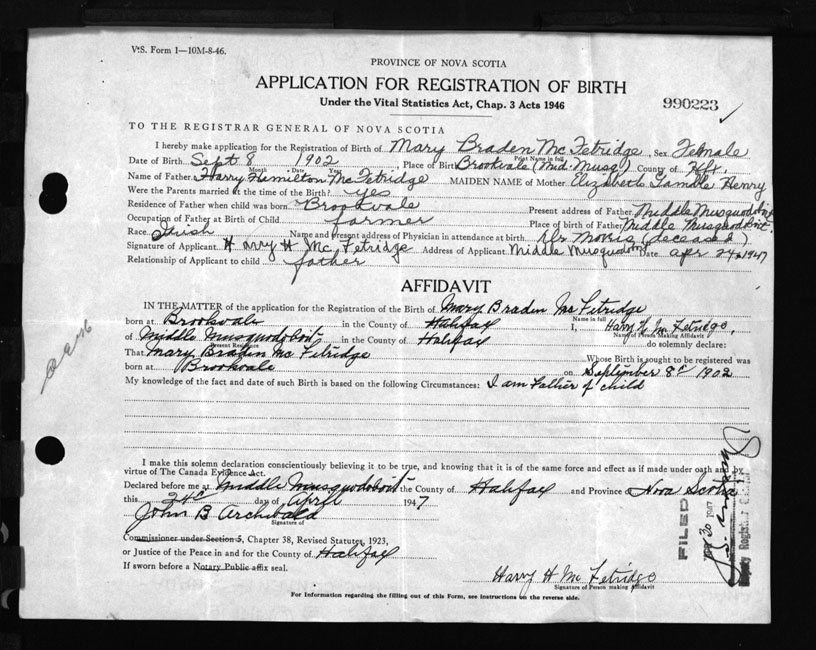 V.S. Form 1—10M-8-46.
PROVINCE OF NOVA SCOTIA
APPLICATION FOR REGISTRATION OF BIRTH
Under the Vital Statistics Act, Chap. 3 Acts 1946
990223
TO THE REGISTRAR GENERAL OF NOVA SCOTIA
I hereby make application for the Registration of Birth of Mary Braden McFetridge, Sex Female
Print Name in full
Date of Birth Sept 8 1902, Place of Birth Brookvale (Mid. Musq.) County of Hfx.
Month Date Year
Name of Father Harry Hamilton McFetridge MAIDEN NAME of Mother Elizabeth Henry
Were the Parents married at the time of the Birth? yes
Residence of Father when child was born Brookvale Present address of Father Middle Musquodoboit
Occupation of Father at Birth of Child farmer Place of birth of Father Middle Musquodoboit.
Race Irish Name and present address of Physician in attendance at birth Dr Morris (deceased)
Signature of Applicant Harry H McFetridge Address of Applicant Middle Musquodoboit Date Apr 24 1947
Relationship of Applicant to child father
AFFIDAVIT
IN THE MATTER of the application for the Registration of the Birth of Mary Braden McFetridge
Name in full
born at Brookvale in the County of Halifax I, Harry H McFetridge,
Name of Person Making Affidavit
of Middle Musquodoboit in the County of Halifax do solemnly declare:
Present Residence
That Mary Braden McFetridge Whose Birth is sought to be registered was
born at Brookvale on September 8th 1902
My knowledge of the fact and date of such Birth is based on the following Circumstances: I am Father of child
I make this solemn declaration conscientiously believing it to be true, and knowing that it is of the same force and effect as if made under oath and by
virtue of The Canada Evidence Act.
Declared before me at Middle Musquodoboit the County of Halifax and Province of Nova Scotia
this 24th day of April 1947
John B Archibald
Signature of
Commissioner under Section 5, Chapter 38, Revised Statutes, 1923,
or Justice of the Peace in and for the County of Halifax
If sworn before a Notary Public affix seal.
Harry H McFetridge
Signature of Person making Affidavit
For Information regarding the filling out of this Form, see instructions on the reverse side.
FILED